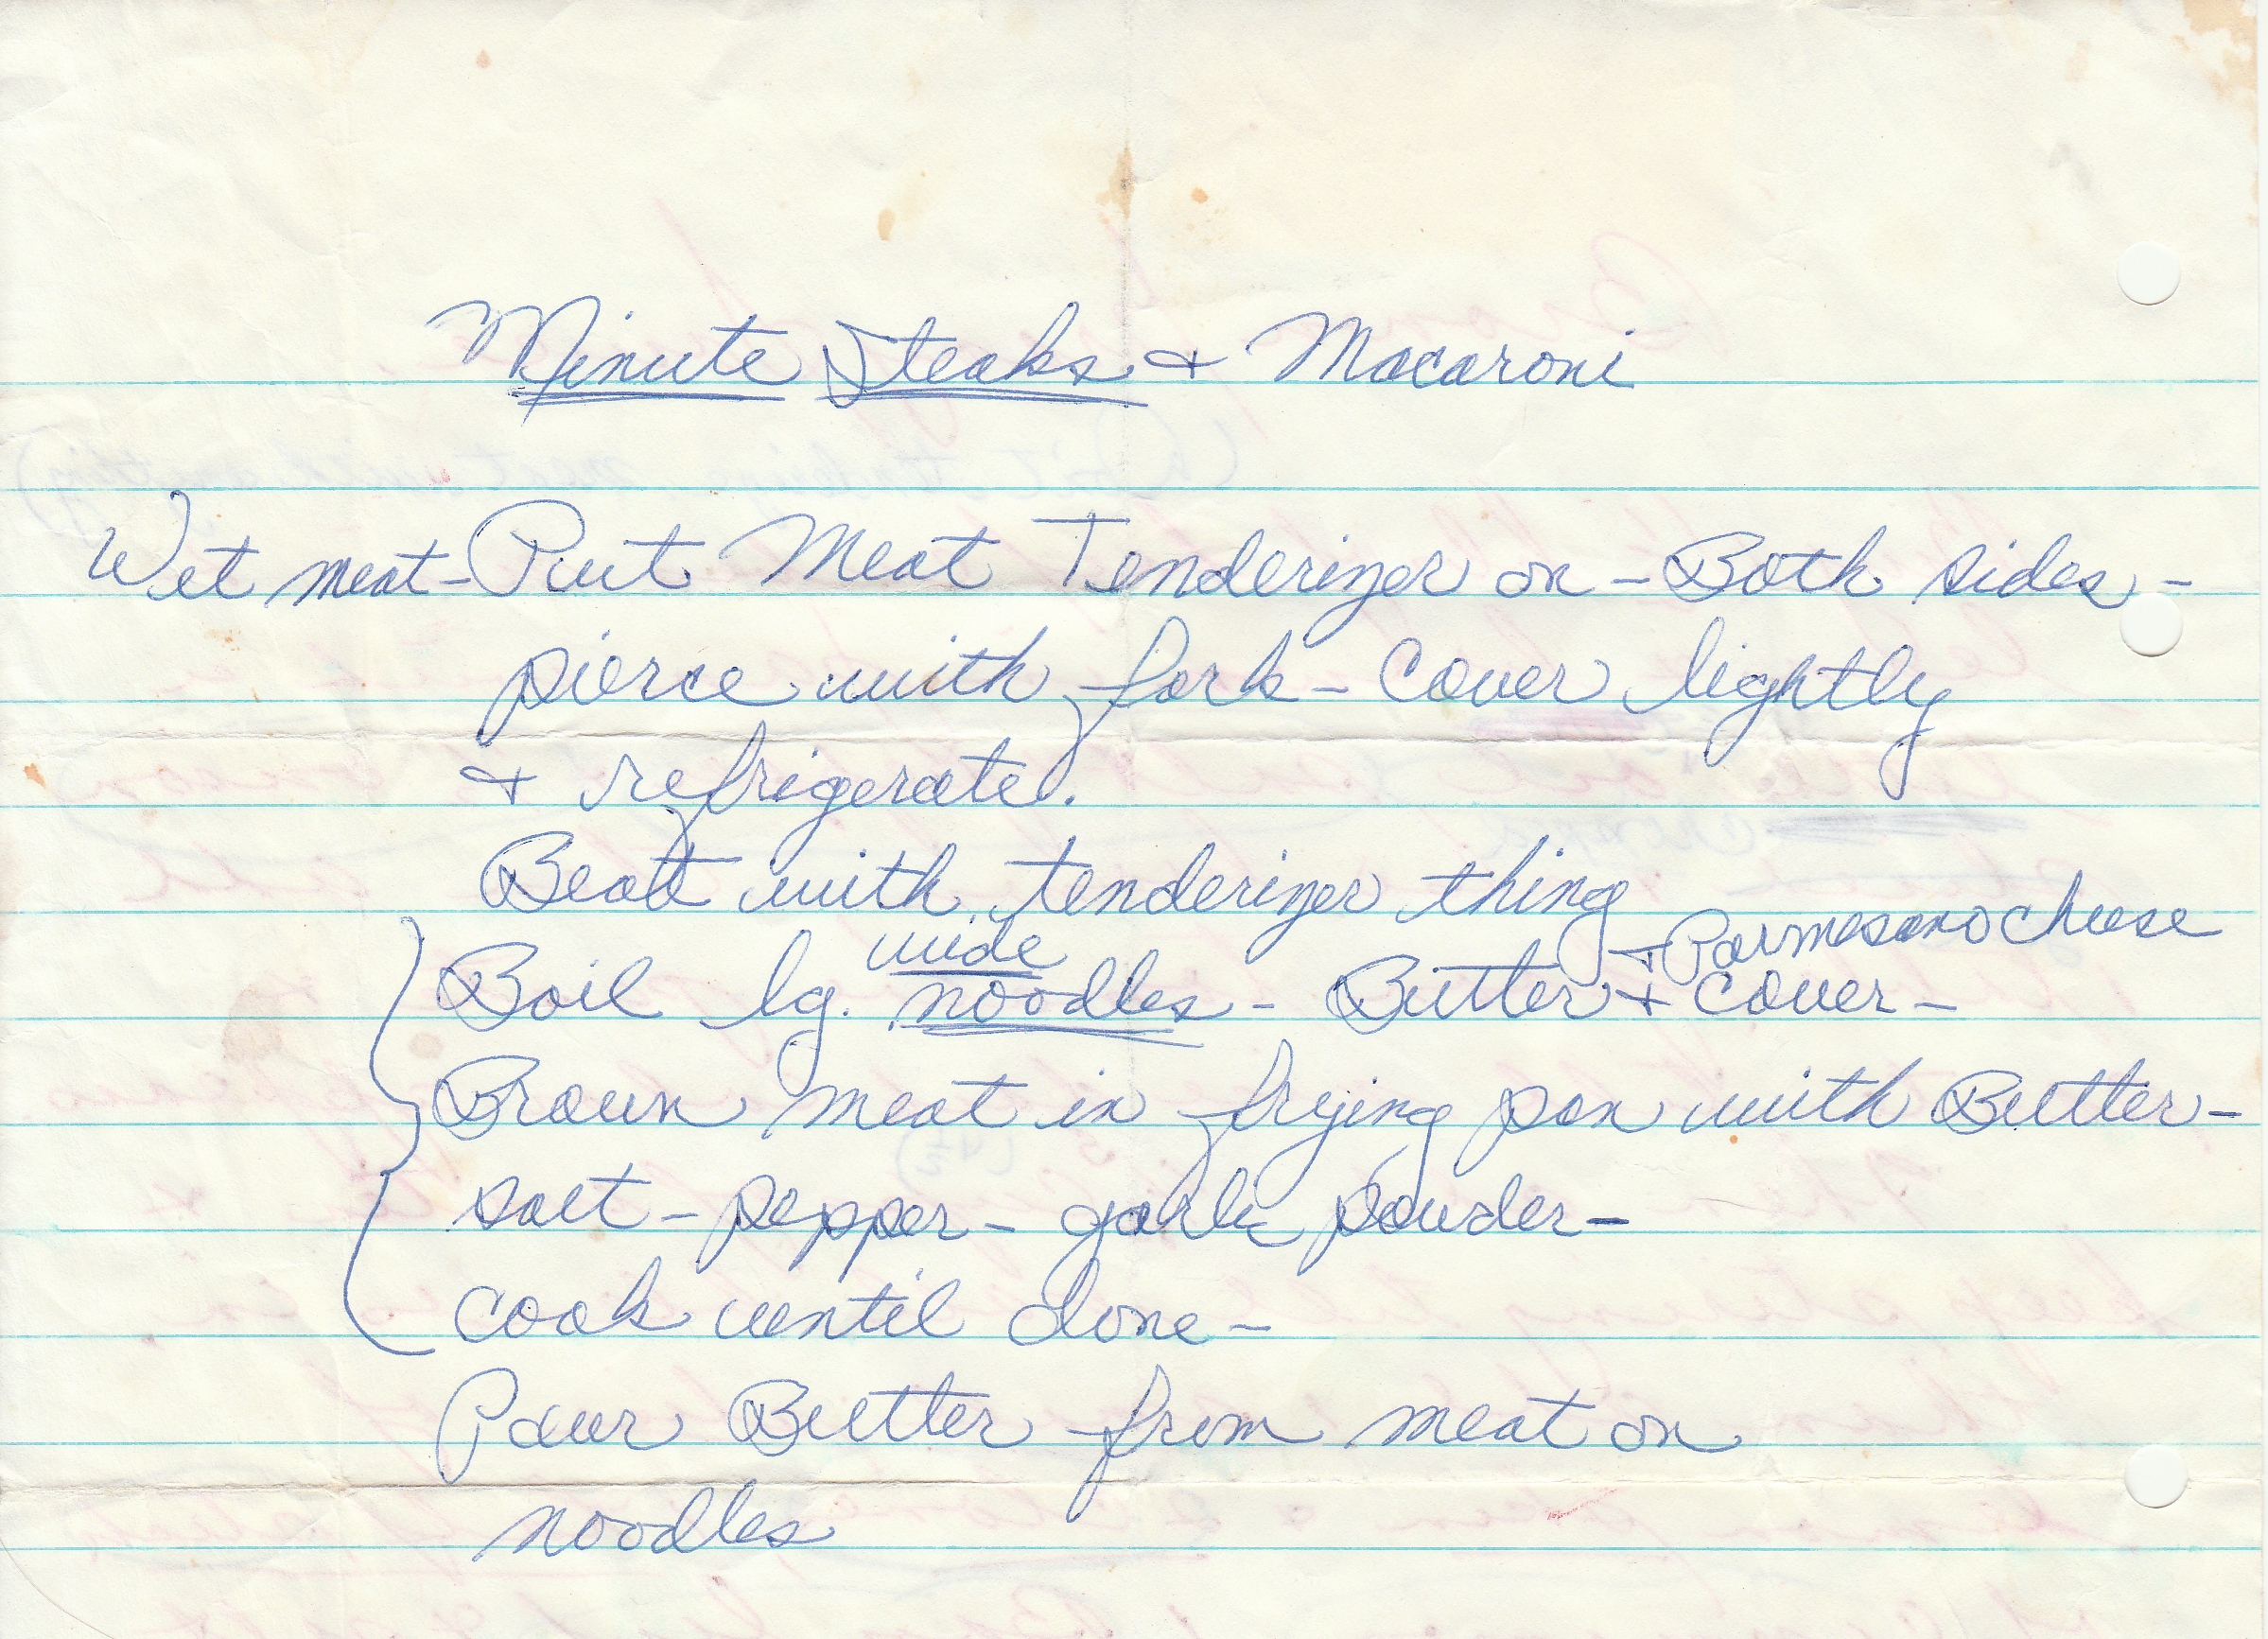 Minute Steaks + Macaroni
Wet meat - Put Meat Tenderizer on - Both sides -
pierce with fork - Cover lightly
+ refrigerate.
Beat with tenderizer thing
wide + Parmesano cheese
Boil lg. noodles - Butter + cover -
Brown meat in frying pan with Butter -
salt - pepper - garlic powder -
cook until done -
Pour Butter from meat on
noodles